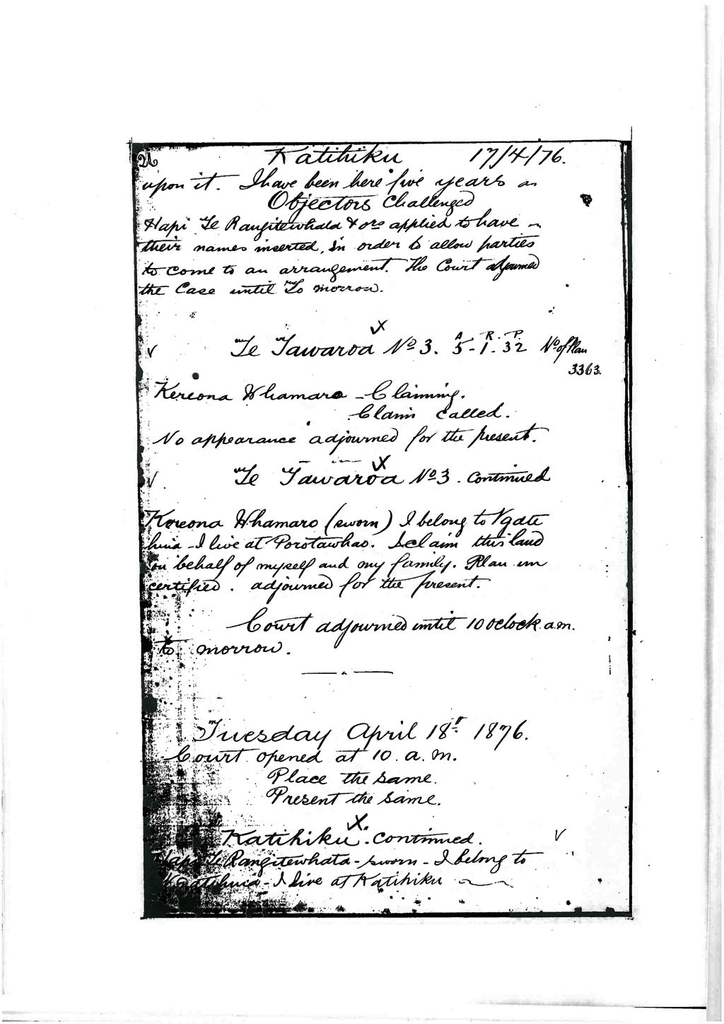 Katihiku 17/4/76.
upon it. I have been here five years
Objectors Challenged
Hapi Te Rangitewhata & ors applied to have
their names inserted, in order to allow parties
to come to an arrangement. The Court adjourned
the Case until To morrow.
Te Tawaroa No 3. A 5 - R 1 . P 32 No of Plan
3363
Kereona Whamaro - Claiming.
Claim called.
No appearance adjourned for the present.
Te Tawaroa No 3. Continued
Kereona Whamaro (sworn) I belong to Ngate
huia - I live at Porotawhao. I claim this land
on behalf of myself and my family. Plan un
certified. adjourned for the present.
Court adjourned until 10 oclock a.m.
to morrow.
Tuesday April 18th 1876.
Court opened at 10. a. m.
Place the same.
Present the same.
Katihiku. Continued.
Hapi Te Rangitewhata - sworn - I belong to
Ngatihuia - I live at Katihiku